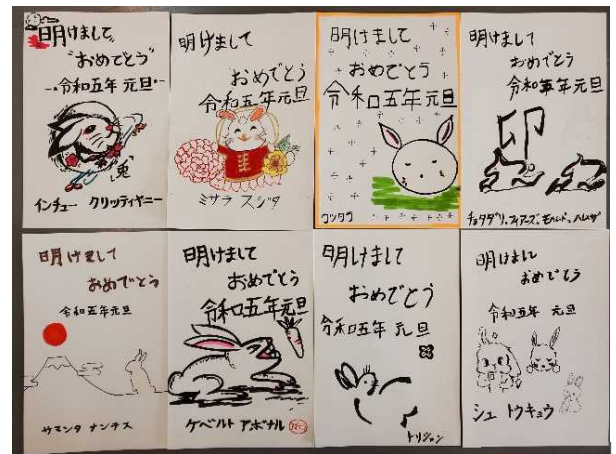 明けまして
"おめでとう"
令和五年 元旦
兎
インチュー クリッティヤニー
明けまして
おめでとう
令和五年元旦
ミサラ スジタ
明けまして
おめでとう
令和五年元旦
明けまして
おめでとう
令和五年元旦
卯
明けまして
おめでとう
令和五年元旦
サマンタ ナンチス
明けまして
おめでとう
令和五年元旦
ケベルト アボナル
明けまして
おめでとう
令和五年 元旦
トリジャン
明けまして
おめでとう
令和五年 元旦
シュ トウキョウ